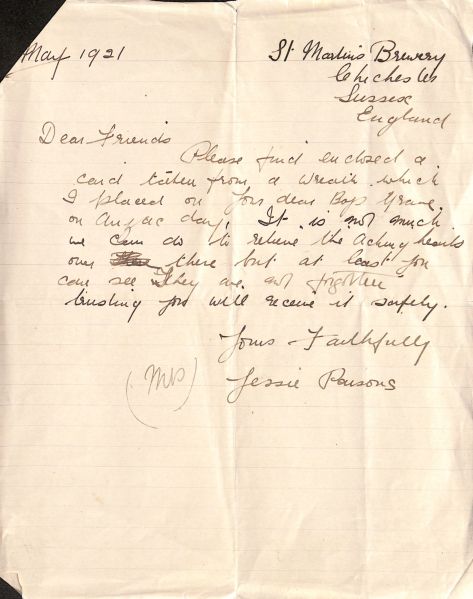 May 1921
St Martins Brewery
Chichester
Sussex
England
Dear Friends
Please find enclosed a
card taken from a wreath which
I placed on your dear Boys Grave
on Anzac day, It is not much
we can do to relieve the Aching hearts
over there but at least you
can see They are not forgotten
trusting you will receive it safely.
Yours Faithfully
(Mrs) Jessie Parsons